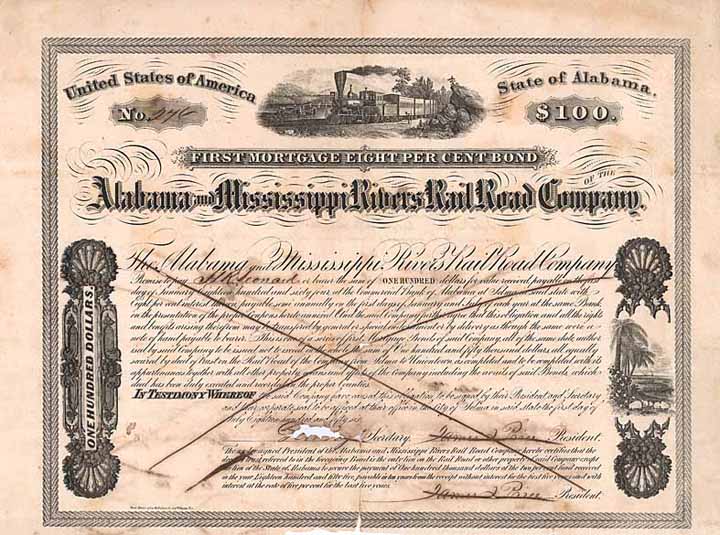 United States of America
State of Alabama.
No. 276
$100.
FIRST MORTGAGE EIGHT PER CENT BOND
OF THE
Alabama and Mississippi Rivers Rail Road Company.
The Alabama and Mississippi Rivers Rail Road Company
Promise to pay or bearer the sum of ONE HUNDRED dollars for value received payable on the first
day of January eighteen hundred and sixty four, at the Commercial Bank of Alabama at Selma in said State with
eight per cent interest thereon payable semi annually on the first days of January and July of each year at the same Bank,
on the presentation of the proper Coupons hereto annexed. And the said Company further agree that this obligation and all the rights
and benefits arising therefrom may be transferred by general or special endorsement or by delivery as though the same were a
note of hand payable to bearer. This is one of a series of first Mortgage Bonds of said Company, all of the same date, author
ised by said Company to be issued not to exceed in amount the sum of one hundred and fifty thousand dollars, all equally
secured by deed of Trust on the Rail Road of the Company from Selma to Uniontown, as completed and to be completed with its
appurtenances together with all other property owned by the Company including the avails of said Bonds, which
deed has been duly executed and recorded in the proper Counties.
IN TESTIMONY WHEREOF the said Company have caused this obligation to be signed by their President and Secretary
and their corporate seal to be affixed at their office in the City of Selma in said State the first day of
July Eighteen hundred and fifty six
Secretary, President.
The undersigned President of the Alabama and Mississippi Rivers Rail Road Company hereby certifies that the
deed of trust referred to in the foregoing Bond is the only lien on the Rail Road or other property of said Company except
a lien of the State of Alabama to secure the payment of One hundred thousand dollars of the two per cent fund received
in the year Eighteen Hundred and fifty five, payable in ten years from the receipt without interest for the first five years and with
interest at the rate of five per cent for the last five years.
President.
ONE HUNDRED DOLLARS.